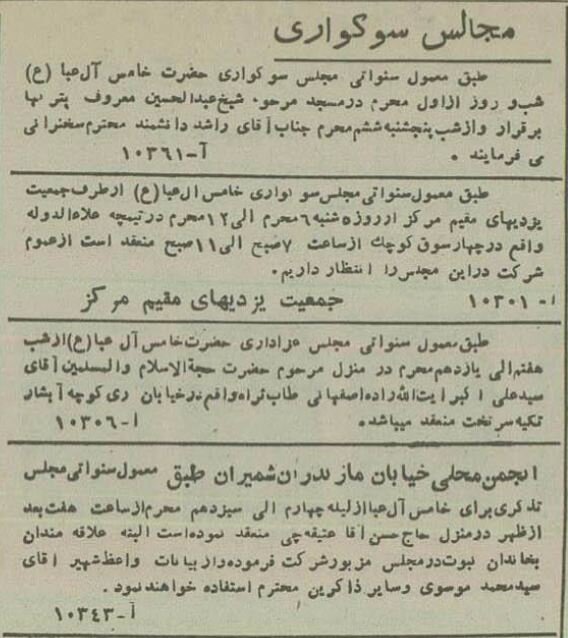 مجالس سوگواری
طبق معمول سنواتی مجلس سوگواری حضرت خامس آل عبا (ع)
شب و روز از اول محرم در مسجد مرحوم شیخ عبدالحسین معروف بترکها
برقرار و از شب پنجشنبه ششم محرم جناب آقای راشد دانشمند محترم سخنرانی
می فرمایند .
آ-۱۰۳۶۱
طبق معمول سنواتی مجلس سوگواری خامس ال عبا (ع) از طرف جمعیت
یزدیهای مقیم مرکز از روز ۵شنبه ۶ محرم الی ۱۲ محرم در تیمچه علاءالدوله
واقع در چهار سوق کوچک از ساعت ۷ صبح الی ۱۱ صبح منعقد است از عموم
شرکت در این مجلس را انتظار داریم.
آ-۱۰۳۰۱ جمعیت یزدیهای مقیم مرکز
طبق معمول سنواتی مجلس عزاداری حضرت خامس آل عبا (ع) از شب
هفتم الی یازدهم محرم در منزل مرحوم حضرت حجة الاسلام والمسلمین آقای
سید علی اکبر آیت الله زاده اصفهانی طاب ثراه واقع در خیابان ری کوچه آبشار
تکیه سرتخت منعقد میباشد.
آ-۱۰۳۰۶
انجمن محلی خیابان مازندران شمیران طبق معمول سنواتی مجلس
تذکری برای خامس آل عبا از لیله چهارم الی سیزدهم محرم از ساعت هفت بعد
از ظهر در منزل حاج حسن آقا عتیقه چی منعقد نموده است البته علاقه مندان
بخاندان نبوت در مجلس مزبور شرکت فرموده و از بیانات واعظ شهیر آقای
سید محمد موسوی و سایر ذاکرین محترم استفاده خواهند نمود .
آ-۱۰۳۴۳